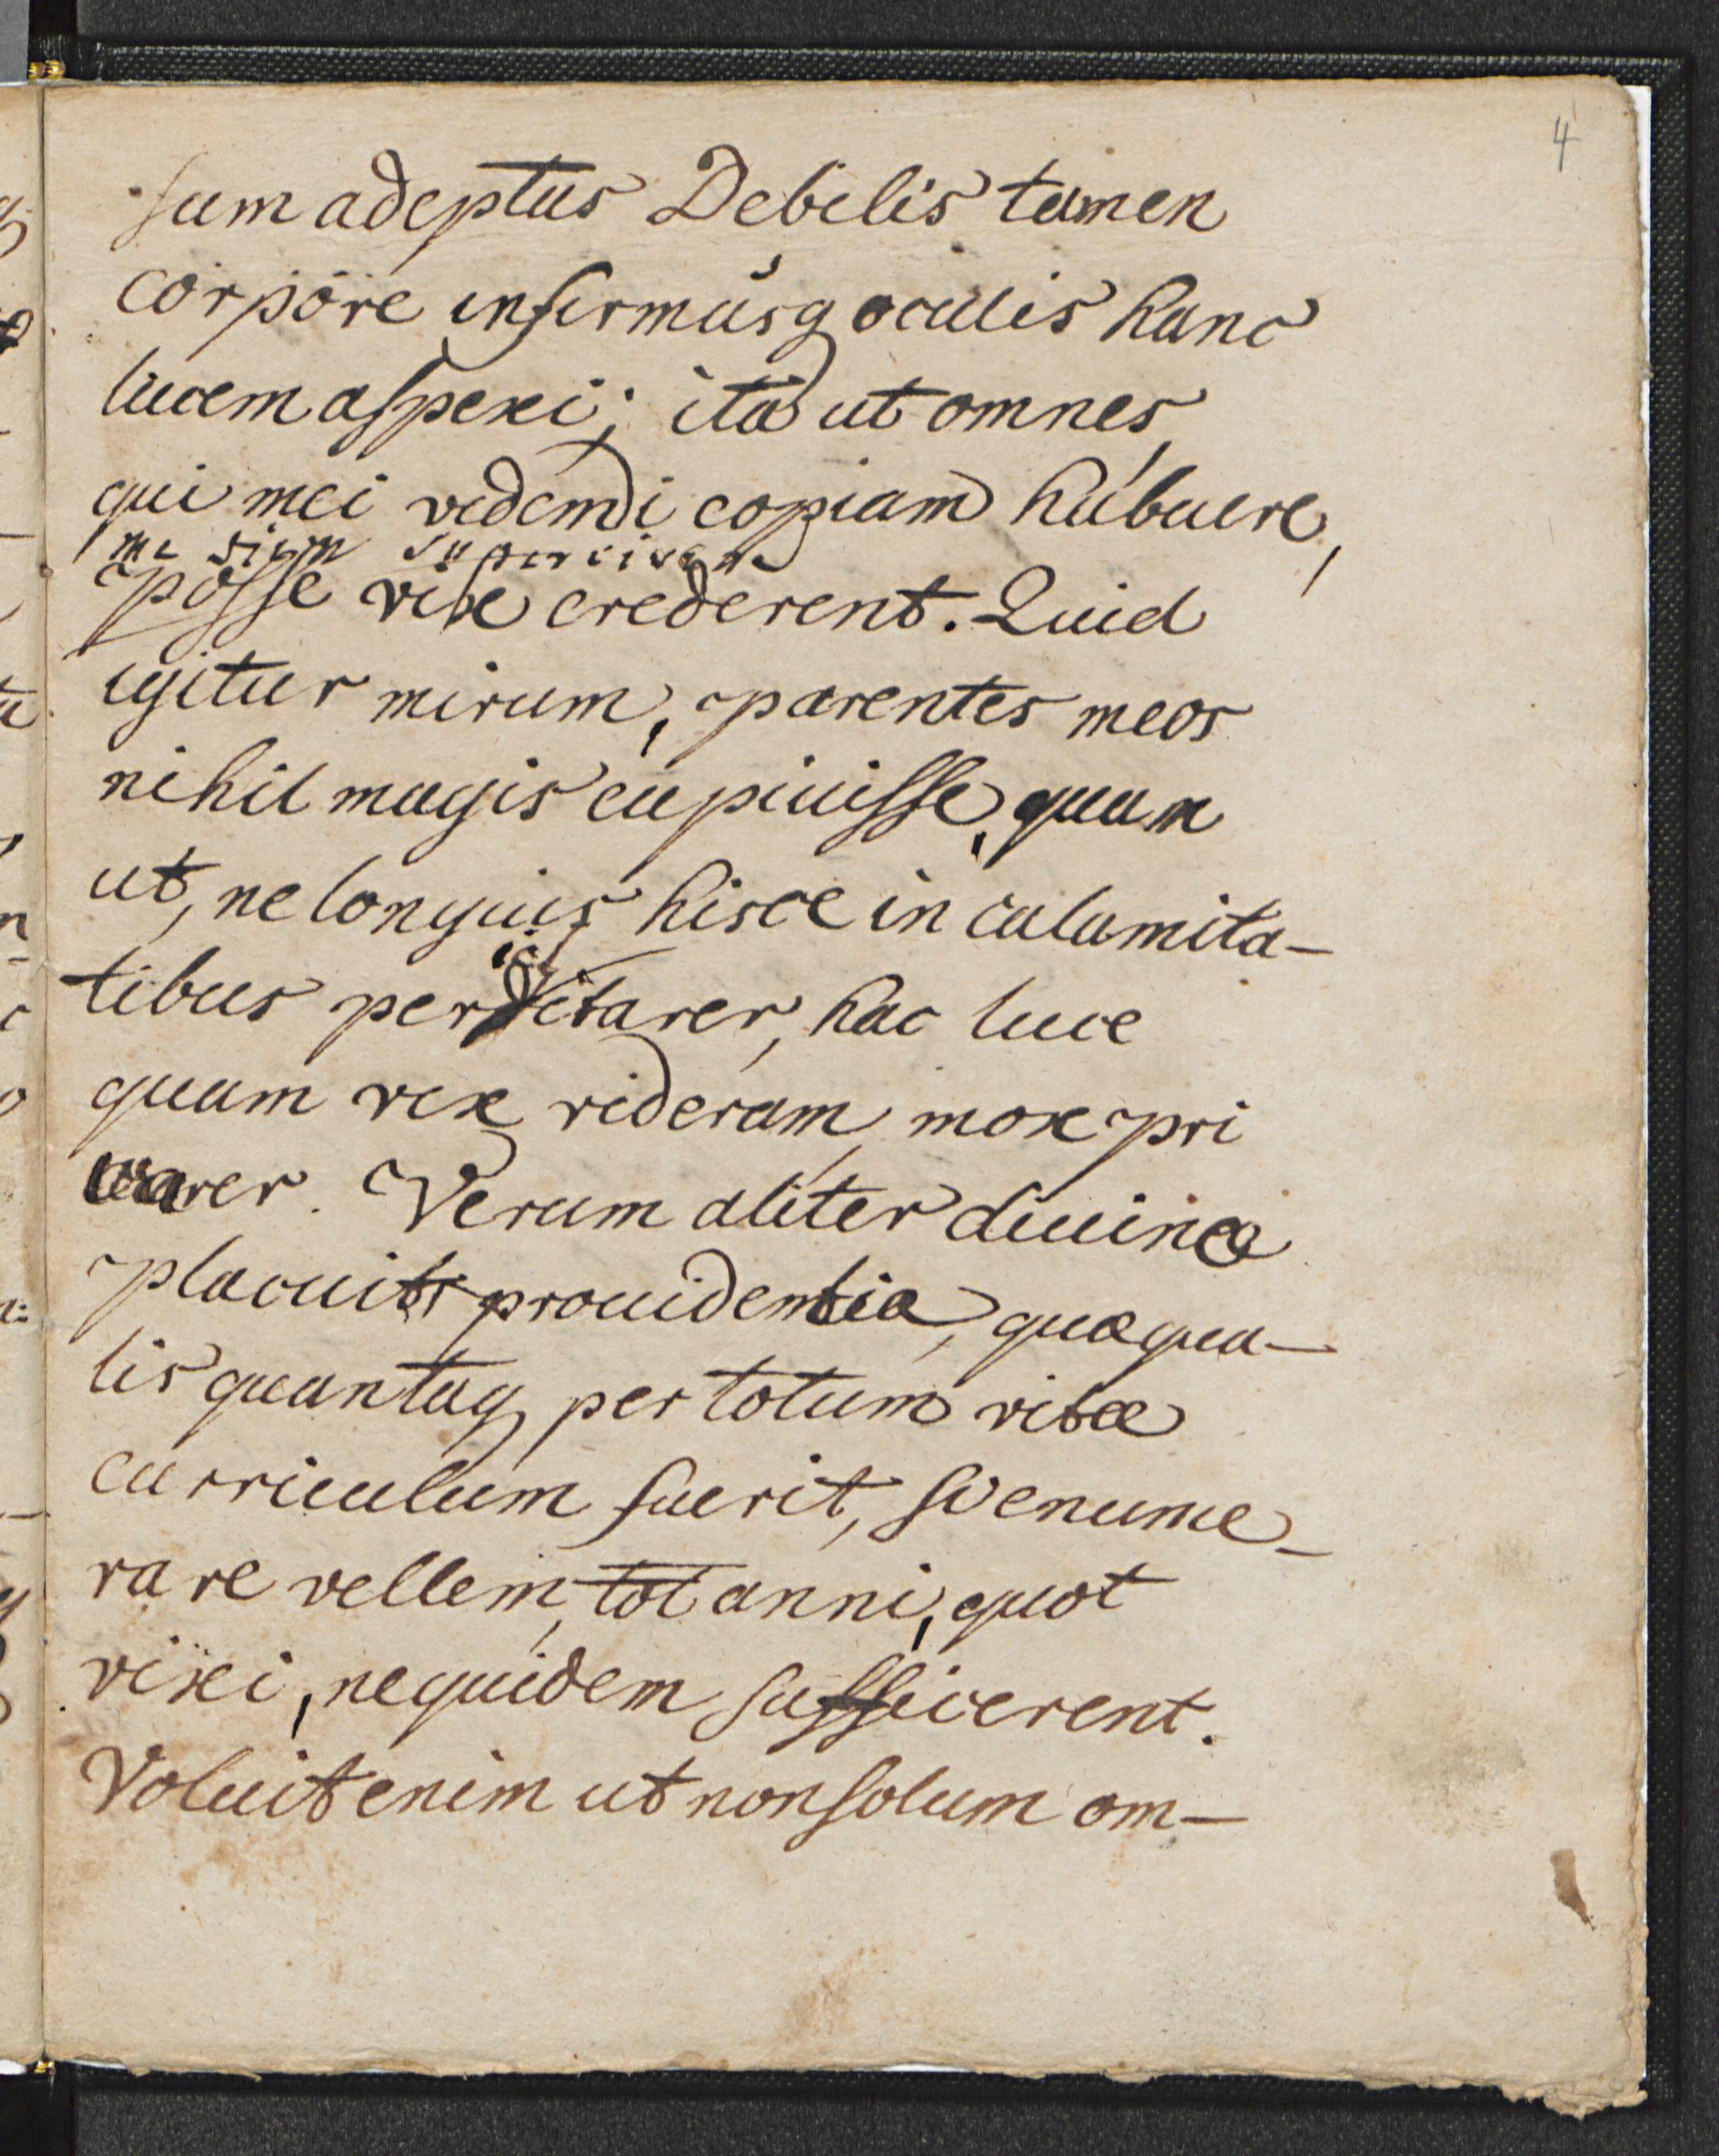 4
sum adeptus Debilis tamen
corpore infirmusq oculis hanc
lucem aspexi; ita ut omnes
qui mei videndi copiam habuere,
me diem supervivere
posse vix crederent. Quid
igitur mirum, parentes meos
nihil magis cupiuisse, quam
ut, ne longius hisce in calamita-
tibus perditarer, hac luce
quam vix videram, mox pri
uarer. Verum aliter diuinæ
placuit prouidentiæ, quæ qua-
lis quantaq, per totum vitæ
curriculum fuerit, si enume-
rare vellem, tot anni, quot
vixi, nequidem sufficerent.
Voluit enim ut non solum om-